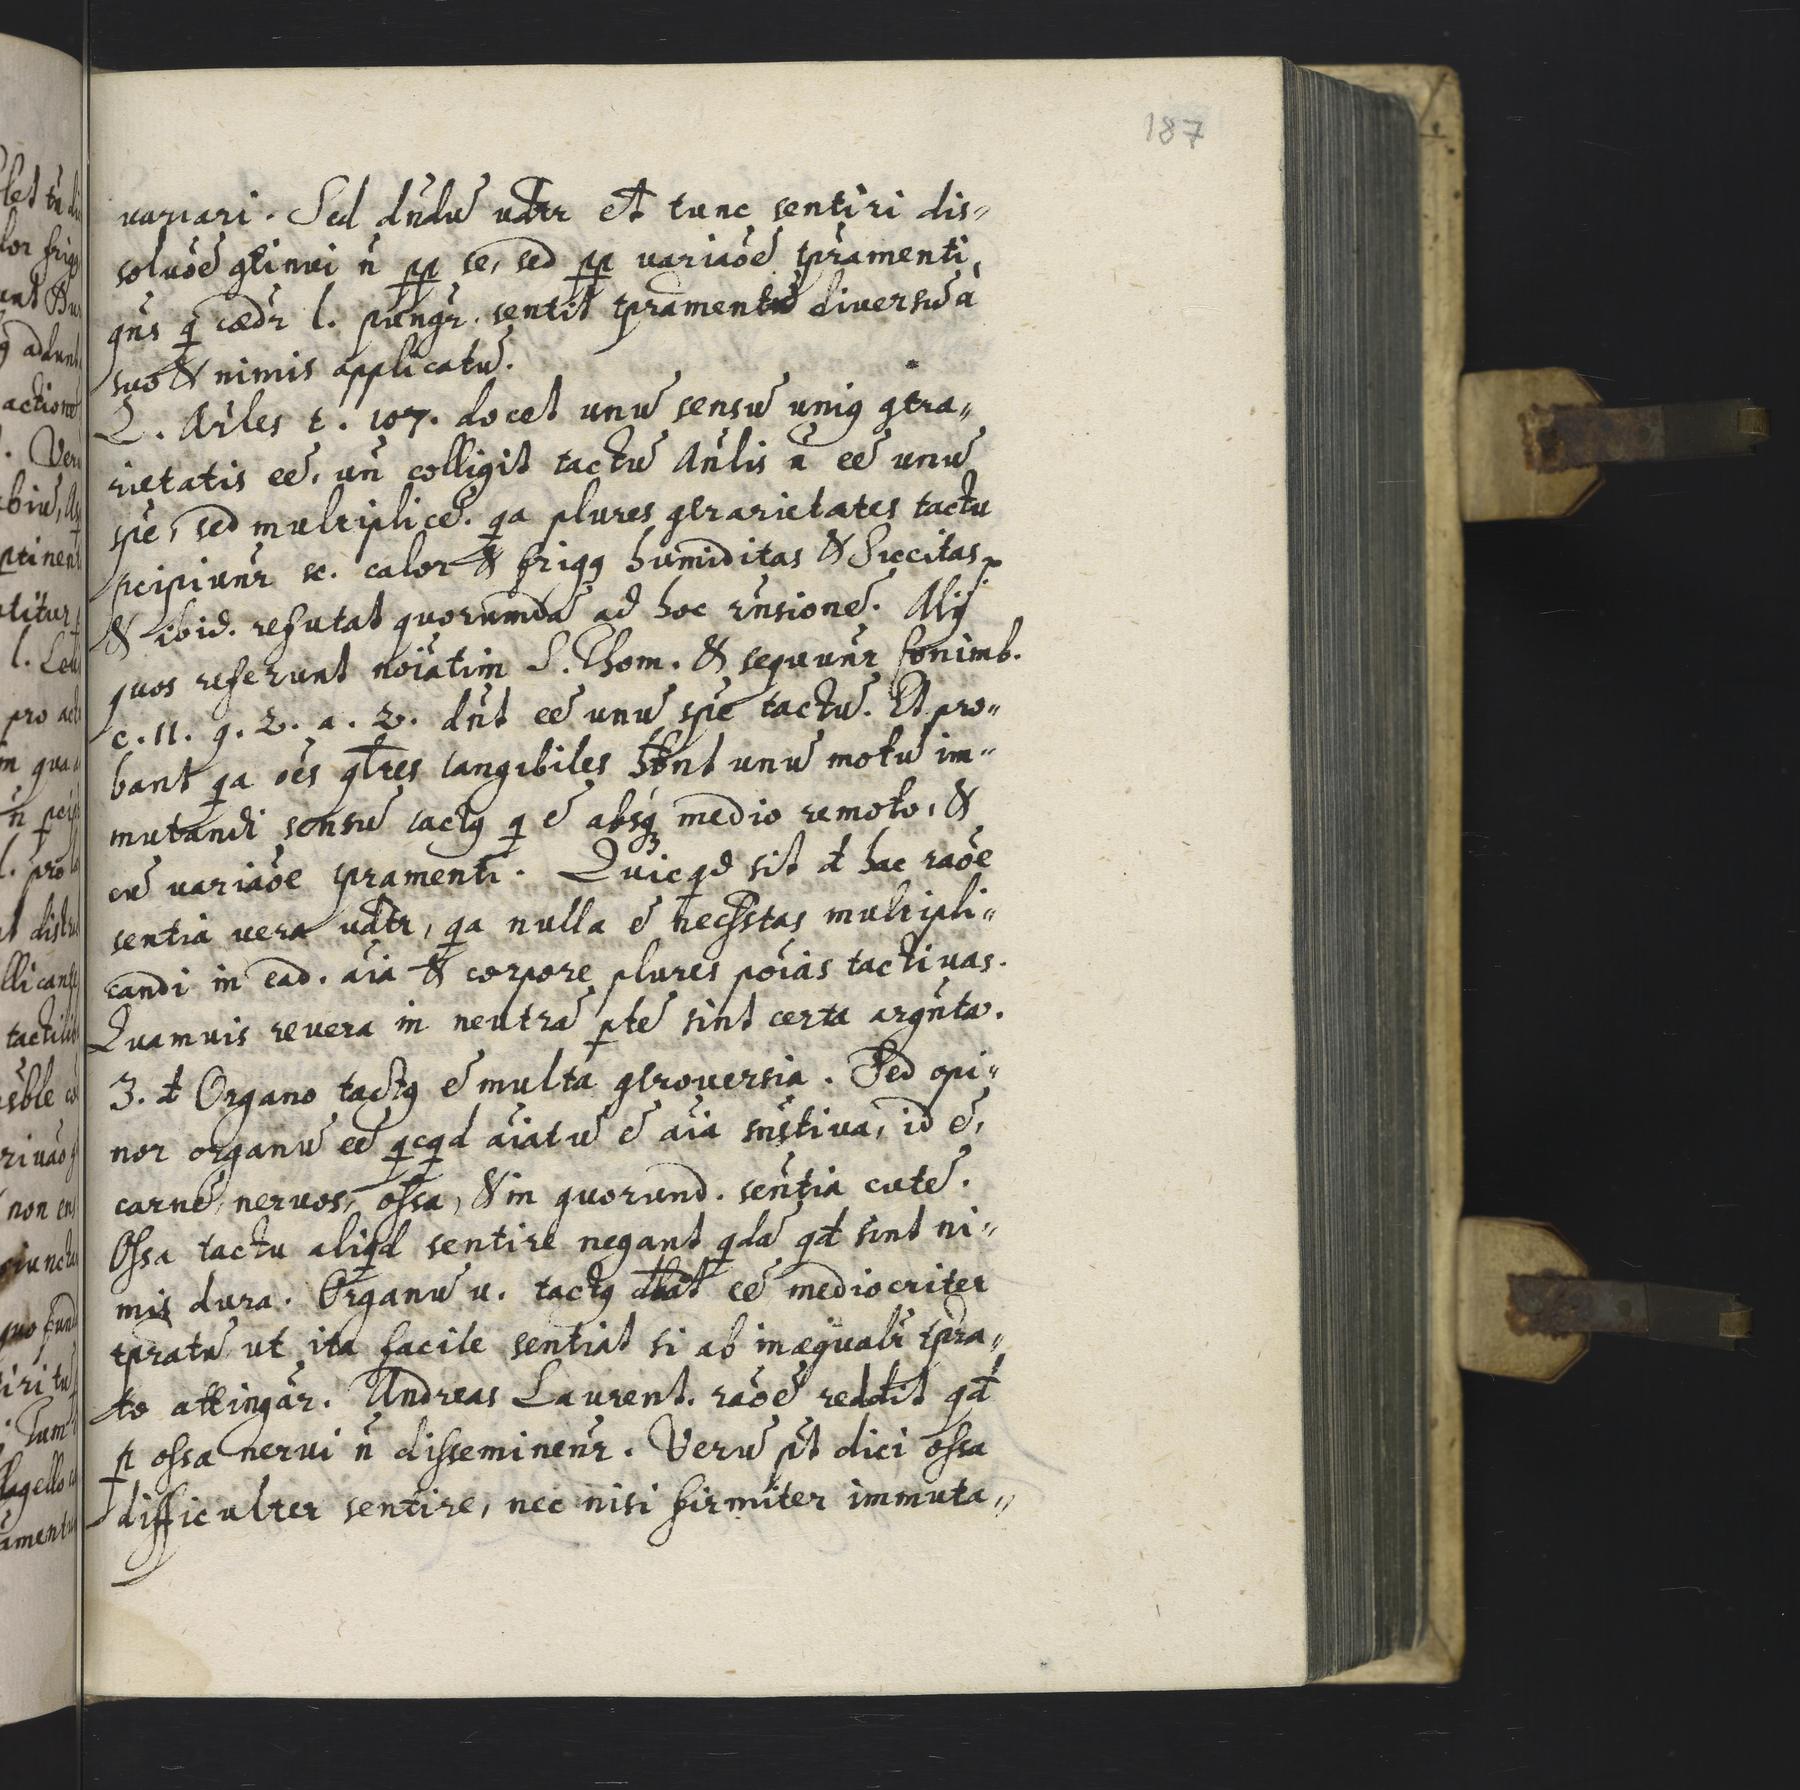 187
variari. Sed dn̄du̅ vdtr et tunc sentiri dis-
soluōe̅ gtinui n̄ pp se, sed pp variaōe̅ tpramenti,
qn̄s q cædr l. pungr̄. sentit tpramentu̅ diversu̅ a
suo & nimis applicatu̅.
2. Ar̄les t. 107. docet unu̅ sensu̅ unig gtra-
rietatis ee̅, un̄ colligit tactu̅ An̄lis n̄ ee̅ unu̅
spe̅, sed multiplice̅. qa plures gtrarietates tactu
pcipiunr̄ sc. calor & frigg humiditas & Siccitas,
& ibid. refutat quorumda̅ ad hoc rn̄sione̅. Alij
quos referunt noi̅atim S. Thom. & sequunr̄ Conimb.
c. 11. q. 2. a. 2. dn̄t ee̅ unu̅ spe̅ tactu̅. Et pro-
bant qa oe̅s qltes tangibiles hn̄t unu̅ motu̅ im-
mutandi sensu̅ tactg q e̅ absq medio remoto, &
cu̅ variaōe tpramenti. Quicqd sit d hac raōe
sentia vera vdtr, qa nulla e̅ necsstas multipli-
candi in ead. ai̅a & corpore plures poi̅as tactivas.
Quamvis revera in neutra̅ pte̅ sint certa argn̄ta.
3. d Organo tactg e̅ multa gtroversia. Sed opi-
nor organu̅ ee̅ qcqd ai̅atu̅ e̅ ai̅a sn̄stiva, id e̅,
carne̅, nervos, ossa, & in quorund. sen̄tia cute̅.
Ossa tactu aliqd sentire negant qda̅ qd sint ni-
mis dura. Organu̅ v. tactg dbat ee̅ mediocriter
tpratu̅ ut ita facile sentiat si ab inæquali tpra-
to attingar̄. Andreas Laurent. raōe̅ reddit qd
p ossa nervi n̄ disseminenr̄. Veru̅ pt̄ dici ossa
difficulter sentire, nec nisi firmiter immuta-